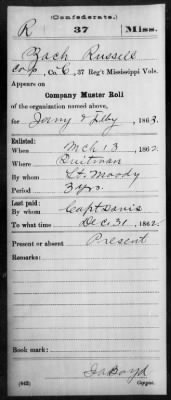 (Confederate.)
R 37 Miss.
Zach Russell
Corp, Co. C, 37 Reg't Mississippi Vols.
Appears on
Company Muster Roll
of the organization named above,
for Jany & Feby, 1863.
Enlisted:
When Mch 13, 1862.
Where Quitman
By whom Lt. Moody
Period 3 yrs.
Last paid:
By whom Capt Davis
To what time Dec. 31, 1862.
Present or absent Present
Remarks:
Book mark:
(642) Copyist.